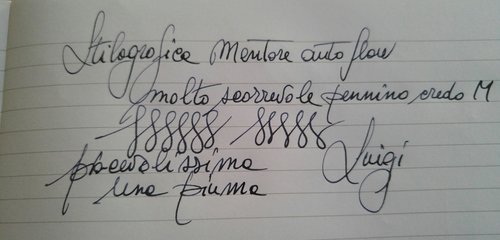 Stilografica Mentore auto flow
molto scorrevole pennino credo M
piacevolissima
Luigi
una piuma